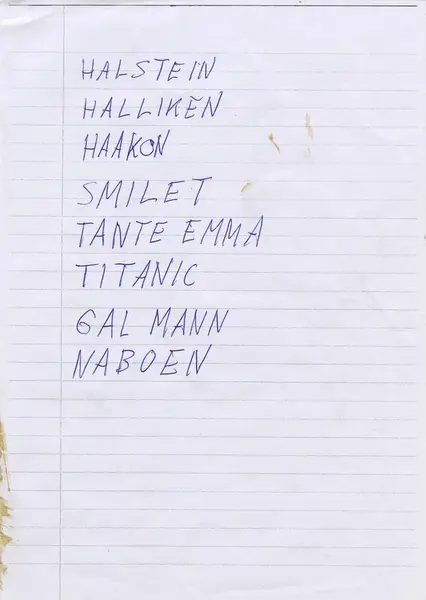 HALSTEIN
HALLIKEN
HAAKON
SMILET
TANTE EMMA
TITANIC
GAL MANN
NABOEN